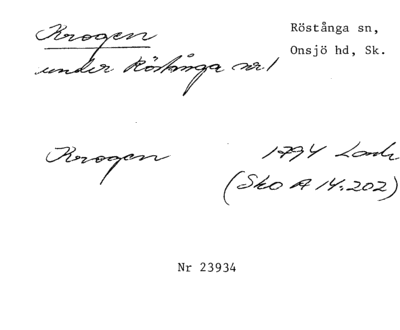 Krogen
Röstånga sn,
Onsjö hd, Sk.
under Röstånga nr 1
Krogen 1794 Lantm
(Sko A 14:202)
Nr 23934